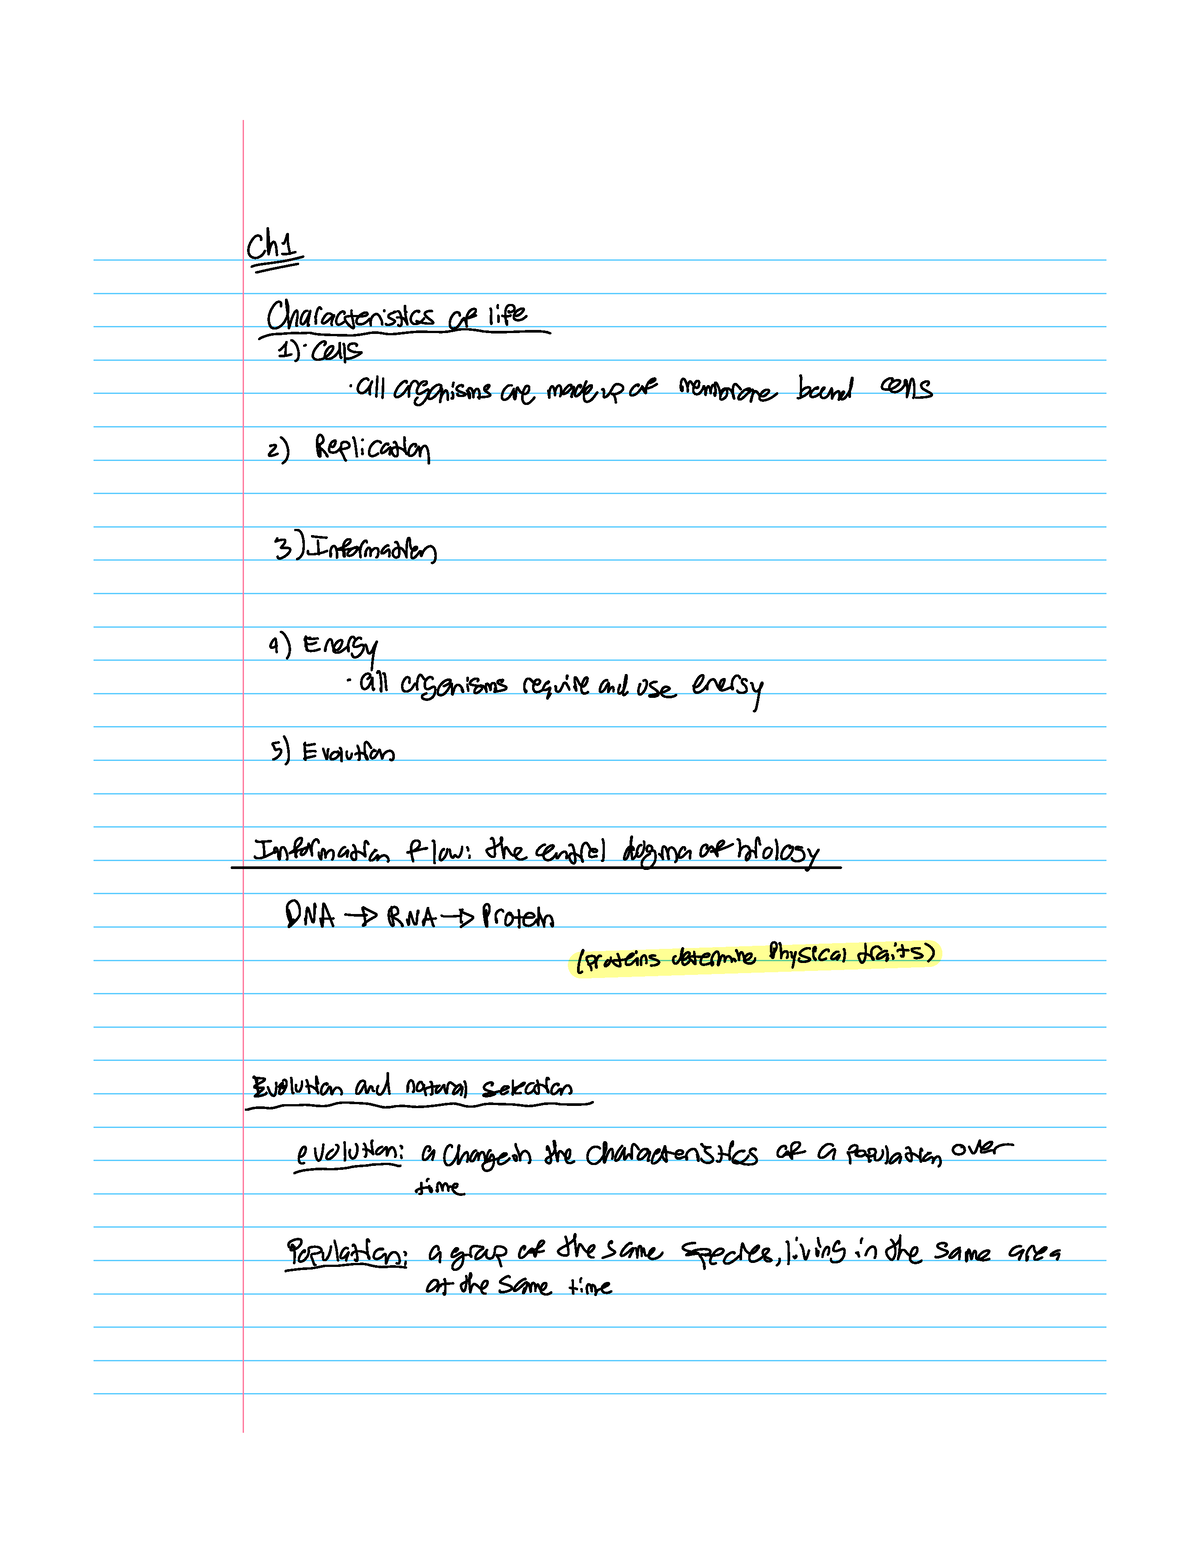 Ch1
Characteristics of life
1)· Cells
· all organisms are made up of membrane bound cells
2) Replication
3) Information
4) Energy
· all organisms require and use energy
5) Evolution
Information flow: the central dogma of biology
DNA → RNA → Protein
(proteins determine Physical traits)
Evolution and natural selection
evolution: a change in the characteristics of a population over
time
Population: a group of the same species, living in the same area
at the same time